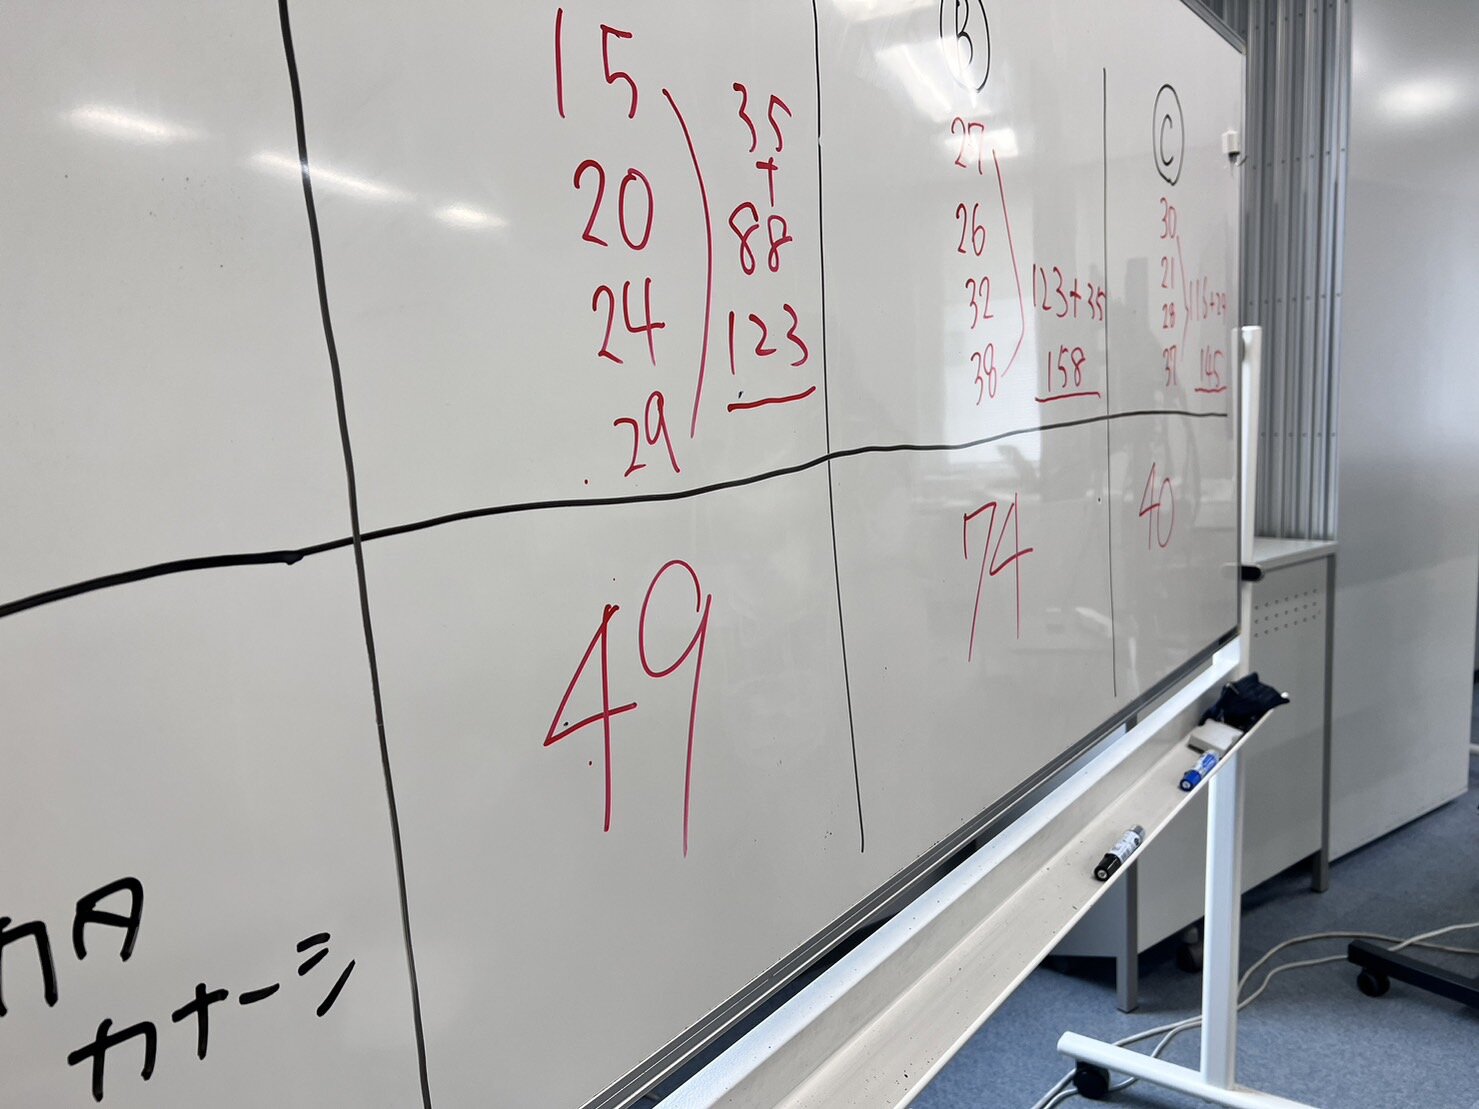 15
20
24
29
35
+
88
123
49
B
27
26
32
38
123+35
158
74
C
30
21
28
37
116+29
145
40
カタ
カナーシ